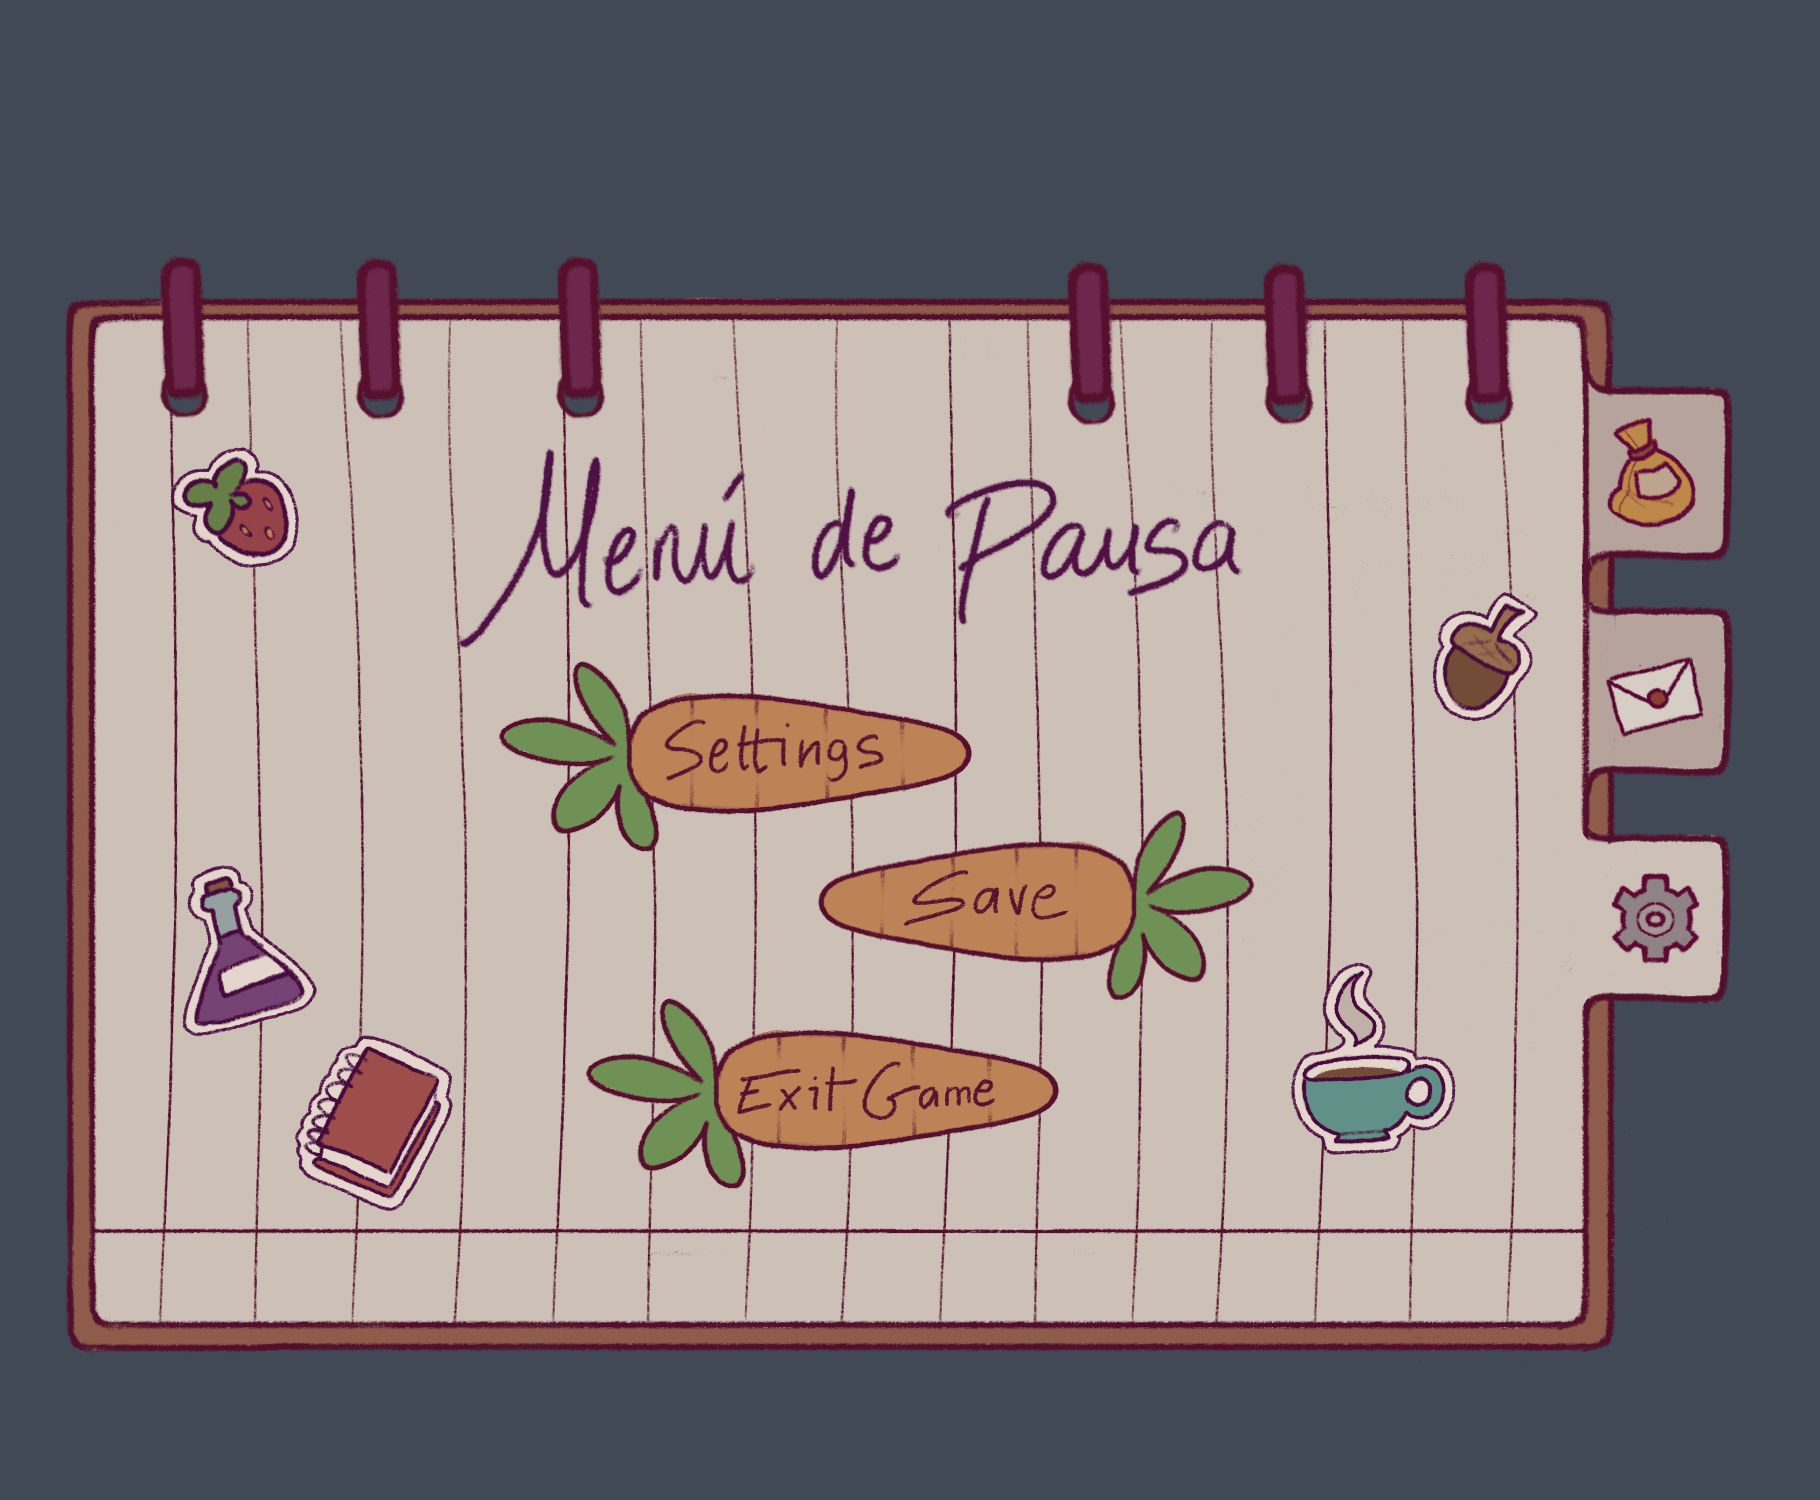 Menú de Pausa
Settings
Save
Exit Game